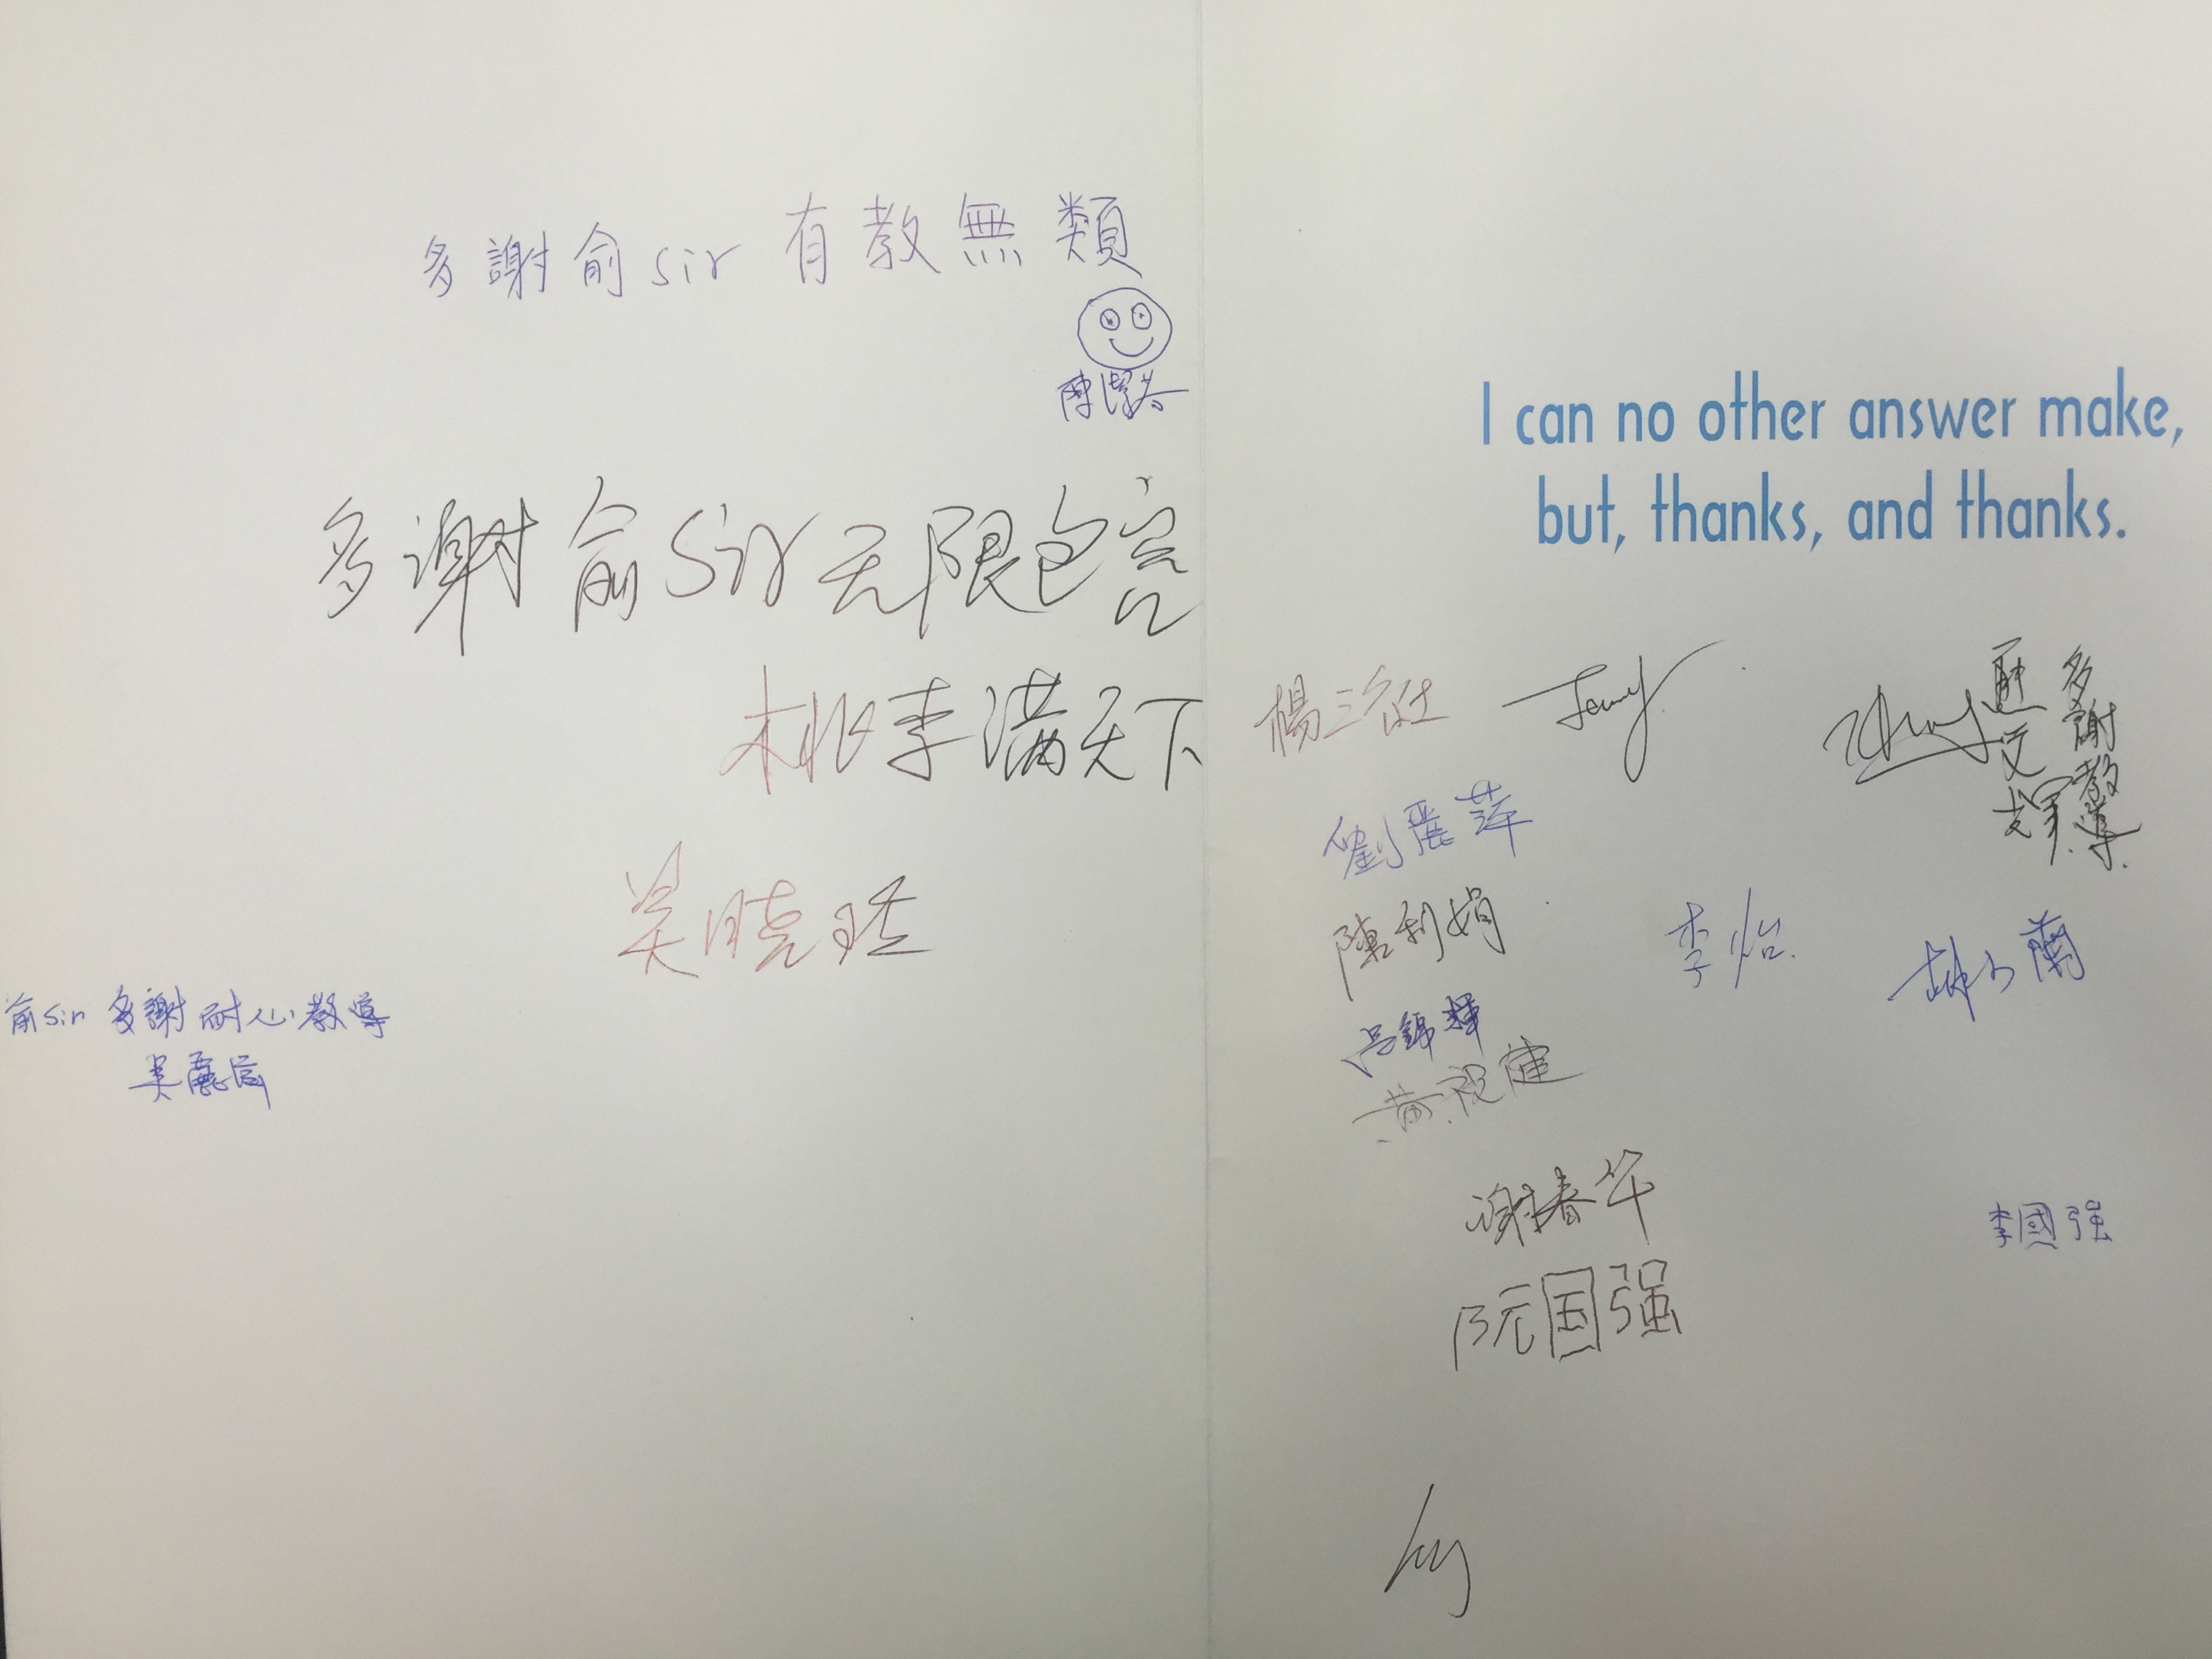 多謝俞sir有教無類
多謝俞Sir无限包容
桃李满天下
吴晓珏
俞sir多謝耐心教導
吴麗
I can no other answer make,
but, thanks, and thanks.
楊三
Jenny
多謝教導
劉麗萍
陳利娟
李怡
胡少蘭
呂錦輝
黃健
谢春华
李國强
阮国强